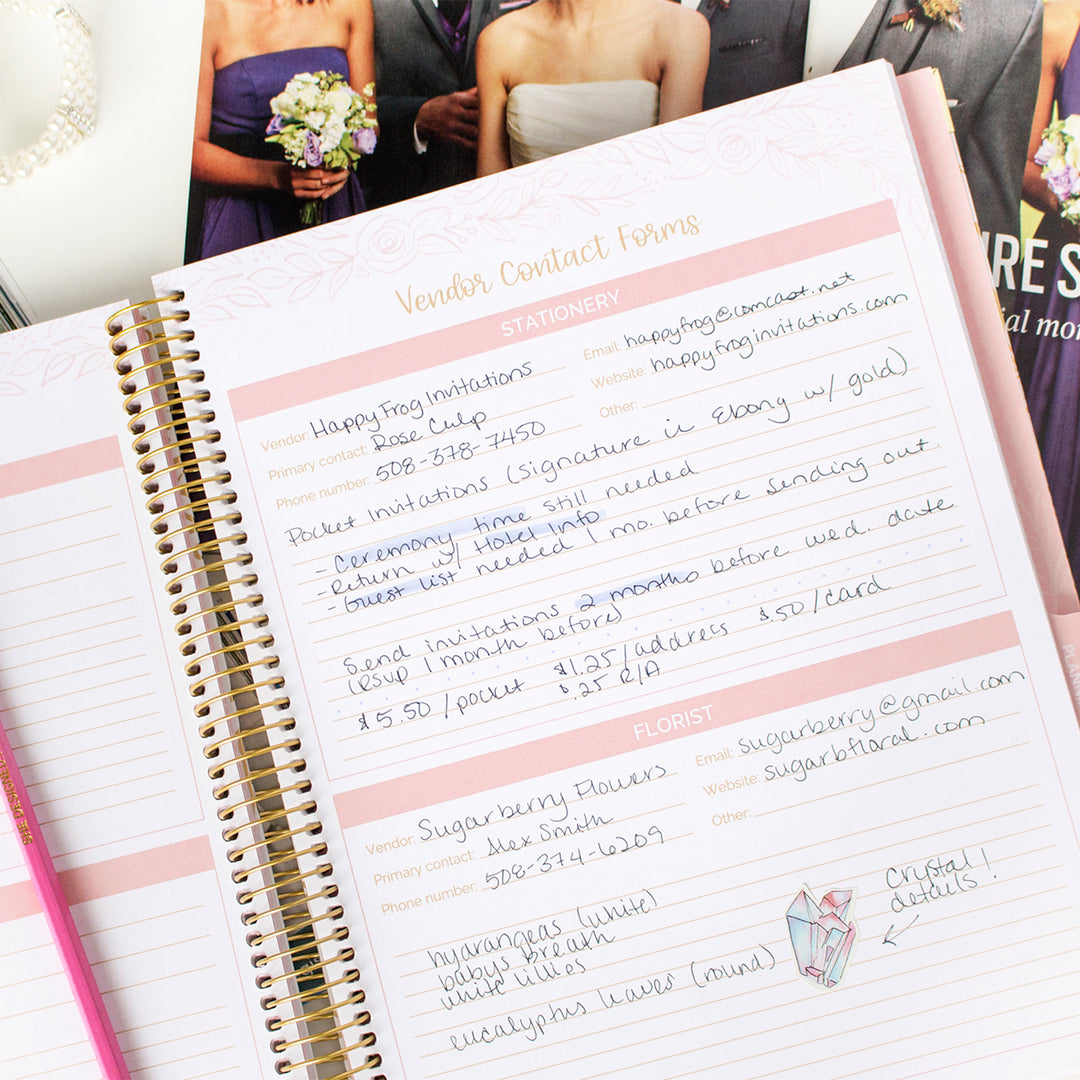 Vendor Contact Forms
STATIONERY
Vendor: HappyFrog Invitations
Primary contact: Rose Culp
Phone number: 508-378-7450
Email: happyfrog@comcast.net
Website: happyfroginvitations.com
Other:
Pocket Invitations (Signature in Ebony w/ gold)
- Ceremony time still needed
- Return w/ Hotel Info
- Guest list needed 1 mo. before sending out.
Send invitations 2 months before wed. date
(RSVP 1 month before)
$5.50/pocket $1.25/address $.50/card
$.25 R/A
FLORIST
Vendor: Sugarberry Flowers
Primary contact: Alex Smith
Phone number: 508-374-6209
Email: sugarberry@gmail.com
Website: sugarbfloral.com
Other:
hydrangeas (white)
babys breath
white lillies
eucalyptus leaves (round)
Crystal
details!
RE S
ial mo
PLANN